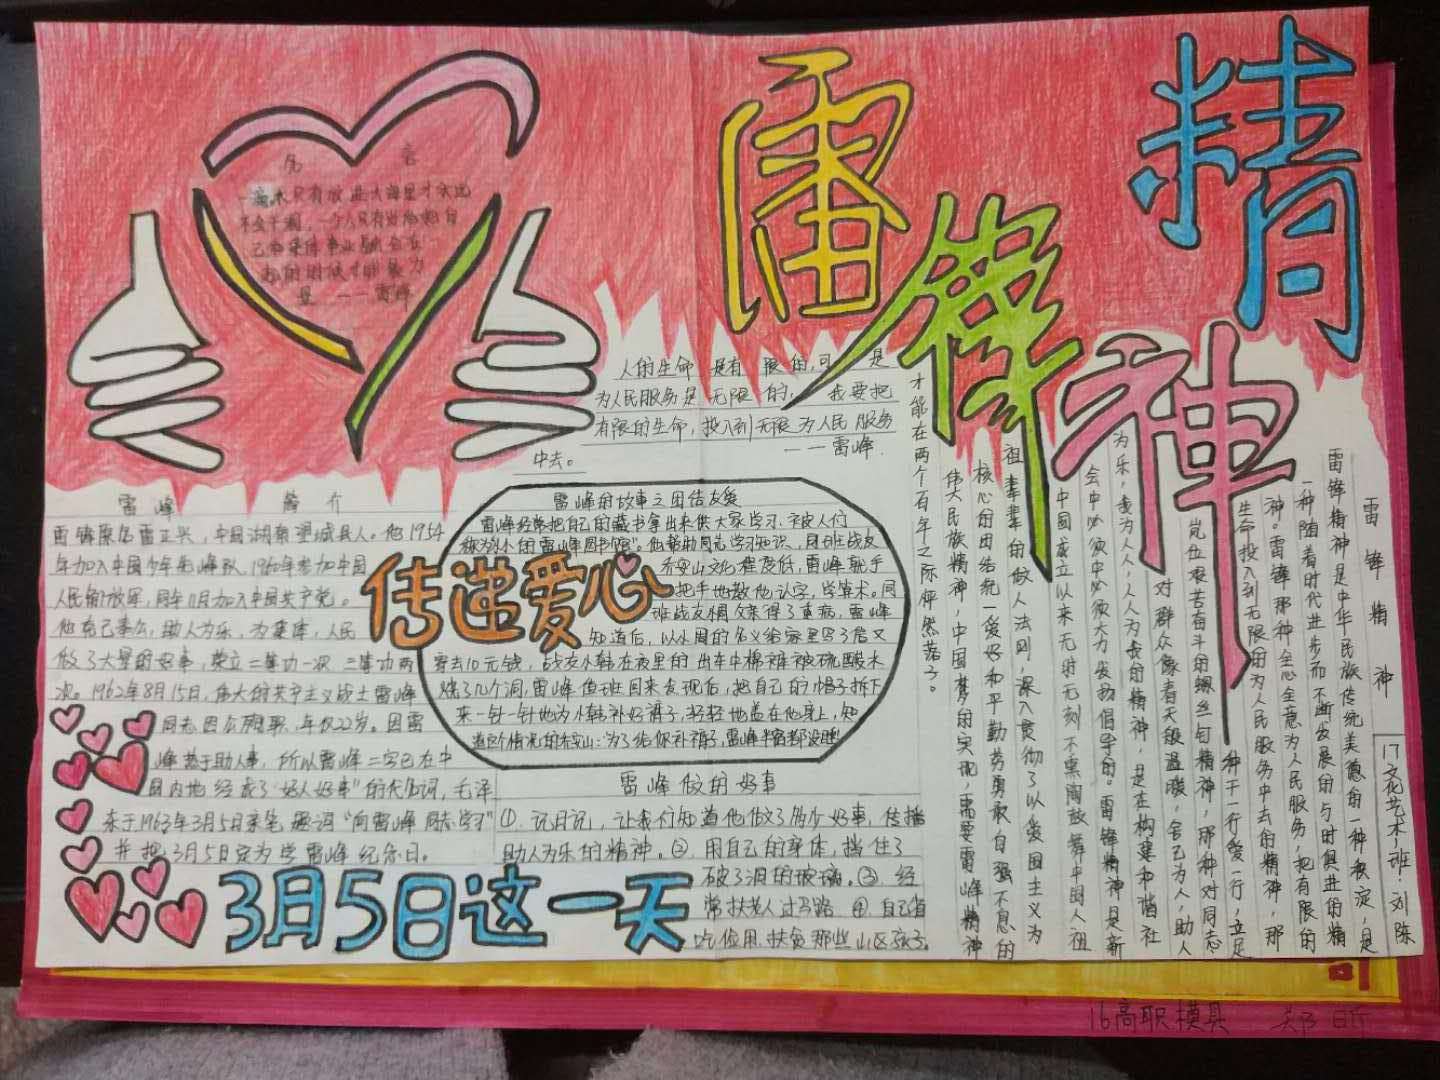 雷锋精神
名 言
一滴水只有放进大海里才永远
不会干涸,一个人只有当他把自
己和集体事业融合在一
起的时候才有最力
量 ——雷峰
人的生命 是有 限的,可 是
为人民服务是 无限 的, 我要把
有限的生命,投入到无限为人民服务
中去。 ——雷峰.
雷 峰 简 介
雷锋原名雷正兴,中国湖南望城县人。他1954
年加入中国少年先峰队,1960年参加中国
人民解放军,同年11月加入中国共产党。
他克己奉公,助人为乐,为集体,人民
做了大量的好事,荣立二等功一次 三等功两
次。1962年8月15日,伟大的共产主义战士雷峰
同志因公殉职,年仅22岁。因雷
峰热于助人事,所以雷峰二字已在中
国内地 经成了“好人好事”的代名词,毛泽
东于1963年3月5日亲笔 题词“向雷峰同志学习”
并 把3月5日定为 学 雷峰 纪念日。
传递爱心
雷峰的故事之团结友爱
雷峰经常把自己的藏书拿出来供大家学习,被人们
称为“小的雷峰图书馆”。他帮助同志学习知识,同班战友
乔安山文化程度低,雷峰就手
把手地教他认字,学算术。同
班战友周 父亲得了重病,雷峰
知道后,以小周的名义给家里写了信又
寄去10元钱,战友小韩在夜里的 出车中棉裤被硫酸水
烧了几个洞,雷峰值班回来发现后,把自己的帽子拆下
来一针一针地为小韩补好裤子,轻轻地盖在他身上,知
道这个情况的乔安山:为了给你补裤子,雷峰半宿都没睡
雷 峰 做 的 好 事
①.说日记,让我们知道他做了多少好事,传播
助人为乐的精神。②.用自己的身体,挡住了
破了洞的玻璃。③.经
常扶老人过马路 ④.自己省
吃俭用,扶贫那些山区孩子。
3月5日这一天
雷 锋 精 神
雷锋精神是中华民族传统美德的一种积淀,是
一种随着时代进步而不断发展的与时俱进的精
神。雷锋那种全心全意为人民服务,把有限的
生命投入到无限的为人民服务中去的精神,那
种干一行爱一行,立足
岗位艰苦奋斗的螺丝钉精神,那种对同志
对群众像春天般温暖,舍己为人,助人
为乐,我为人人,人人为我的精神,是在构建和谐社
会中必须中必须大力发扬倡导的。雷锋精神是新
中国成立以来无时无刻不熏陶鼓舞中国人祖
祖辈辈的做人法则,深入贯彻了以爱国主义为
核心的团结统一爱好和平勤劳勇敢自强不息的
伟大民族精神,中国梦的实现,需要雷峰精神
才能在两个百年之际怦然落子。
17文花艺术,班,刘陈
16高职模具 郑昕